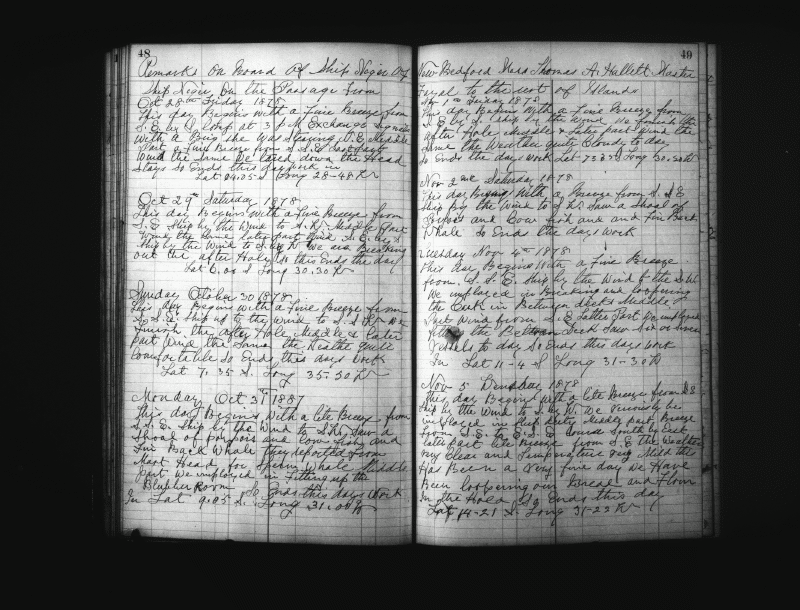 48
Remarks On Board Of Ship Niger Of
Ship Niger On the Passage from
Oct 28th Friday 1878
This day Begins With a Fine Breeze from
S.E. by S. Ship at 3 P M Exchanged Signals
With a Brig She Was Steering N.E. Middle
Part a Fine Breeze from S.S.E. Later Part
Wind the Same We laced down the Head
Stays So Ends this day work in
Lat 04.05 S Long 28-48 W
Oct 29th Saturday 1878
This day Begins With a Fine Breeze from
S.E. Ship by the Wind to S.W. Middle Part
Wind the Same Later part Wind S.E. by S
Ship by the Wind to S. by W We are Breaking
out the after Hole So this Ends the day
Lat 6.00 S Long 30.30 W
Sunday October 30 1878
This day Begins With a Fine Breeze from
S.S.E. Ship up to the Wind to S.S.W. We
Finish the after Hole Middle & Later
part Wind the Same the Weather quite
Comfortable So Ends this days Work
Lat 7.35 S. Long 35-30 W
Monday Oct 31st 1887
This day Begins With a lite Breeze from
S.S.E. Ship by the Wind to S.W. Saw a
Shoal of Porpois and Cow Fish and
Fin Back Whale they reported from
Mast Head for Sperm Whale Middle
Part We imployed in Fitting up the
Blubber Room So Ends this days Work
In Lat 9.05 S. Long 31.00 W
49
New Bedford Mass Thomas A. Hallett Master
Fayal to the west of Islands
Nov 1st Friday 1878
This day Begins With a Fine Breeze from
S.E. by S. Ship by the Wind We finish the
after Hole Middle & Later part Wind the
Same the Weather quite Cloudy to day
So Ends the days Work Lat 7 S Long 30.50 W
Nov 2nd Saturday 1878
This day Begins With a Breeze from S.S.E
Ship by the Wind to S.W. Saw a Shoal of
and Cow fish and and Fin Back
Whale So Ends the days Work
Tuesday Nov 4th 1878
This day Begins With a Fine Breeze
from S.S.E. Ship by the Wind to the S.W.
We imployed in Breaking and
the Cask in Between decks Middle
Part Wind from S.E Later Part We imployed
the Between Deck Saw Six or Seven
Vessels to day So Ends this days work
In Lat 11-4 S Long 31-30 W
Nov 5 1878
This day Begins With a lite Breeze from S.E
Ship by the Wind to S. by W. We
imployed in Ship duty Middle part Breeze
from S.E. to E.S.E. South by West
Later part lite Breeze from S.E the Weather
very Clear and Temperature very Mild this
Has Been a very Fine day We Have
Been our Bread and Flour
In the Hold So Ends this day
Lat 14-21 S. Long 31-22 W